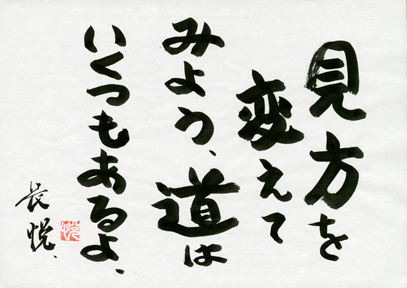 見方を
変えて
みよう、道は
いくつもあるよ、
長悦、
悦